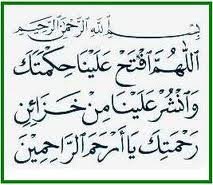 بِسْمِ اللهِ الرَّحْمٰنِ الرَّحِيْمِ
اَللّٰهُمَّ افْتَحْ عَلَيْنَا حِكْمَتَكَ
وَانْشُرْ عَلَيْنَا مِنْ خَزَائِنِ
رَحْمَتِكَ يَا أَرْحَمَ الرَّاحِمِيْنَ